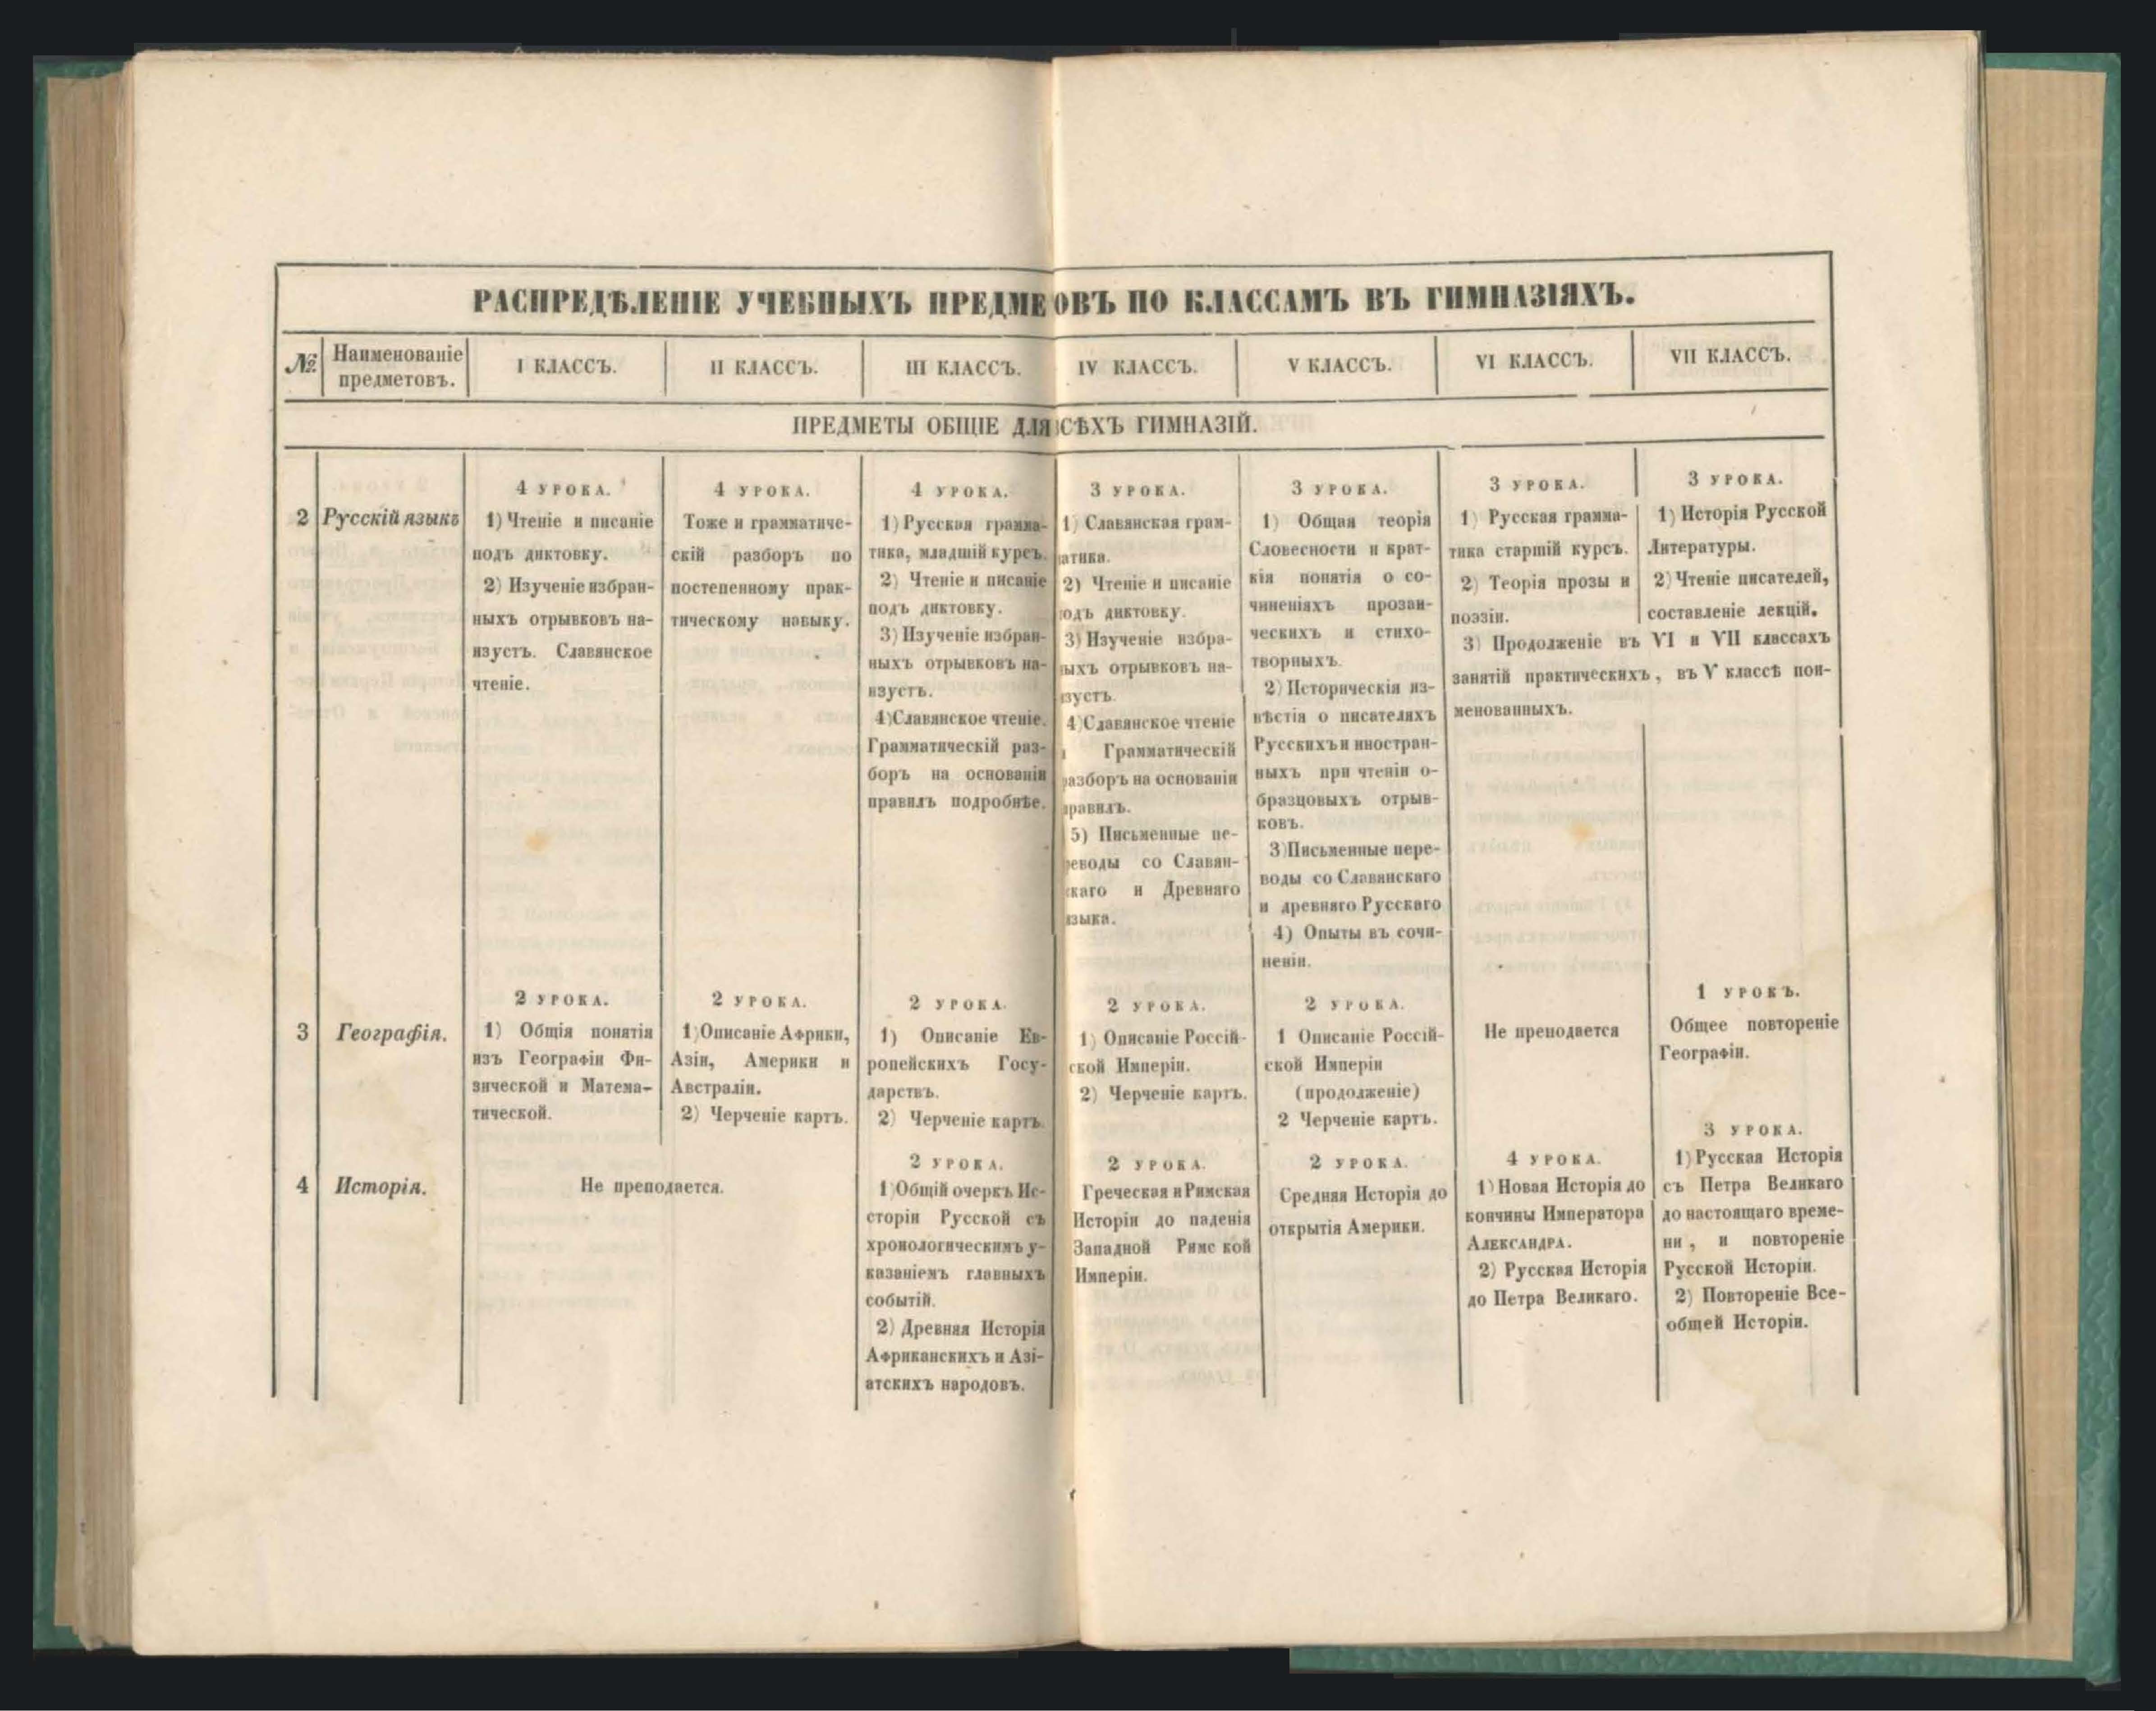 РАСПРЕДѢЛЕНІЕ УЧЕБНЫХЪ ПРЕДМЕ ОВЪ ПО КЛАССАМЪ ВЪ ГИМНАЗІЯХЪ.
№
Наименованіе
предметовъ.
I КЛАССЪ.
II КЛАССЪ.
III КЛАССЪ.
IV КЛАССЪ.
V КЛАССЪ.
VI КЛАССЪ.
VII КЛАССЪ.
ПРЕДМЕТЫ ОБЩІЕ ДЛЯ СѢХЪ ГИМНАЗІЙ.
2
Русскій языкъ
4 УРОКА.
1) Чтеніе и писаніе
подъ диктовку.
2) Изученіе избран-
ныхъ отрывковъ на-
изусть. Славянское
чтеніе.
4 УРОКА.
Тоже и грамматиче-
скій разборъ по
постепенному прак-
тическому навыку.
4 УРОКА.
1) Русская грамма-
тика, младшій курсъ.
2) Чтеніе и писаніе
подъ диктовку.
3) Изученіе избран-
ныхъ отрывковъ на-
изусть.
4) Славянское чтеніе.
Грамматическій раз-
боръ на основаніи
правилъ подробнѣе.
3 УРОКА.
1) Славянская грам-
атика.
2) Чтеніе и писаніе
одъ диктовку.
3) Изученіе избра-
ыхъ отрывковъ на-
зусть.
4) Славянское чтеніе
Грамматическій
азборъ на основаніи
равилъ.
5) Письменные пе-
еводы со Славян-
каго и Древняго
зыка.
3 УРОКА.
1) Общая теорія
Словесности и крат-
кія понятія о со-
чиненіяхъ прозаи-
ческихъ и стихо-
творныхъ.
2) Историческія из-
вѣстія о писателяхъ
Русскихъ и иностран-
ныхъ при чтеніи о-
бразцовыхъ отрыв-
ковъ.
3) Письменные пере-
воды со Славянскаго
и древняго Русскаго
4) Опыты въ сочи-
неніи.
3 УРОКА.
1) Русская грамма-
тика старшій курсъ.
2) Теорія прозы и
поэзіи.
3 УРОКА.
1) Исторія Русской
Литературы.
2) Чтеніе писателей,
составленіе лекцій.
3) Продолженіе въ VI и VII классахъ
занятій практическихъ, въ V классѣ пои-
менованныхъ.
3
Географія.
2 УРОКА.
1) Общія понятія
изъ Географіи Фи-
зической и Матема-
тической.
2 УРОКА.
1) Описаніе Африки,
Азіи, Америки и
Австраліи.
2) Черченіе картъ.
2 УРОКА.
1) Описаніе Ев-
ропейскихъ Госу-
дарствъ.
2) Черченіе картъ.
2 УРОКА.
1) Описаніе Россій-
ской Имперіи.
2) Черченіе картъ.
2 УРОКА.
1 Описаніе Россій-
ской Имперіи
(продолженіе)
2 Черченіе картъ.
Не преподается
1 УРОКЪ.
Общее повтореніе
Географіи.
4
Исторія.
Не преподается.
2 УРОКА.
1) Общій очеркъ Ис-
сторіи Русской съ
хронологическимъ у-
казаніемъ главныхъ
событій.
2) Древняя Исторія
Африканскихъ и Азі-
атскихъ народовъ.
2 УРОКА.
Греческая и Римская
Исторіи до паденія
Западной Римс кой
Имперіи.
2 УРОКА.
Средняя Исторія до
открытія Америки.
4 УРОКА.
1) Новая Исторія до
кончины Императора
АЛЕКСАНДРА.
2) Русская Исторія
до Петра Великаго.
3 УРОКА.
1) Русская Исторія
съ Петра Великаго
до настоящаго време-
ни, и повтореніе
Русской Исторіи.
2) Повтореніе Все-
общей Исторіи.